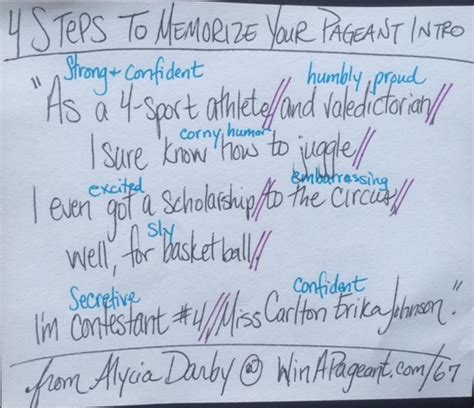 4 Steps To Memorize Your Pageant Intro
Strong + Confident humbly proud
"As a 4-sport athlete// and valedictorian//
corny humor
I sure know how to juggle//
excited embarrassing
I even got a scholarship// to the circus,//
sly
well, for basketball.//
Secretive Confident
I'm contestant #4// Miss Carlton Erika Johnson."
from Alycia Darby @ WinAPageant.com/67